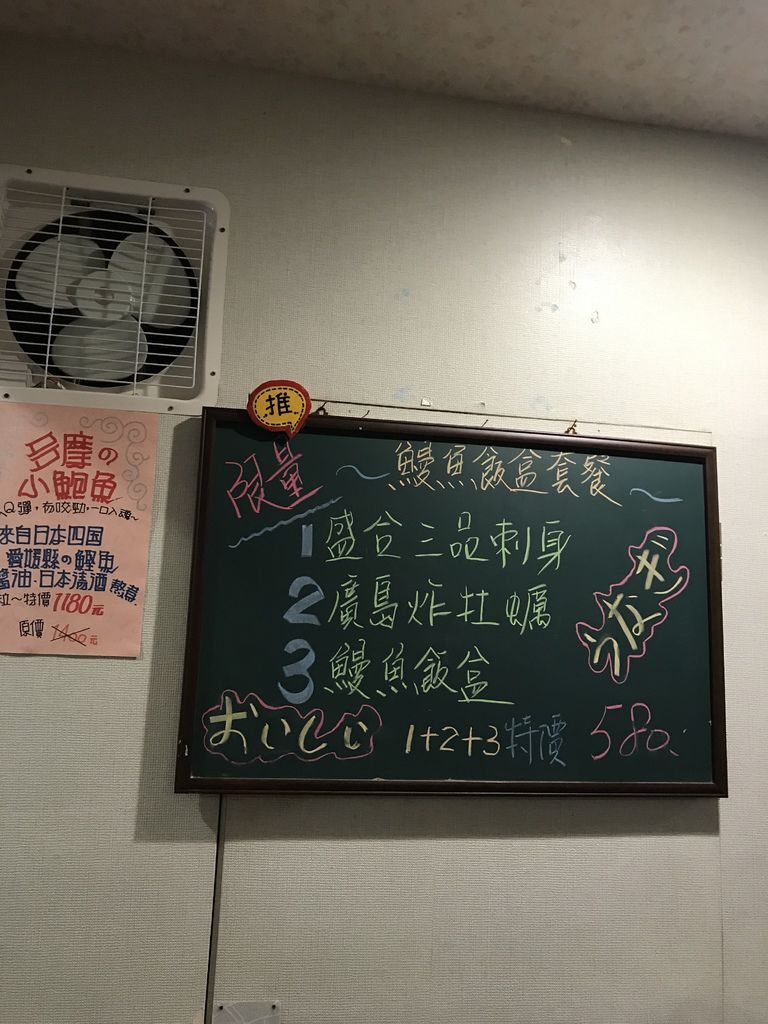 多摩の
小鮑魚
Q彈,有咬勁,一口入魂~
來自日本四国
愛媛縣の鰹魚
醬油.日本清酒 熬煮
粒~特價1180元
原價 元
推
限量
~鰻魚飯盒套餐~
1盛合三品刺身
2廣島炸牡蠣
3鰻魚飯盒
うなぎ
おいしい
1+2+3特價 580.